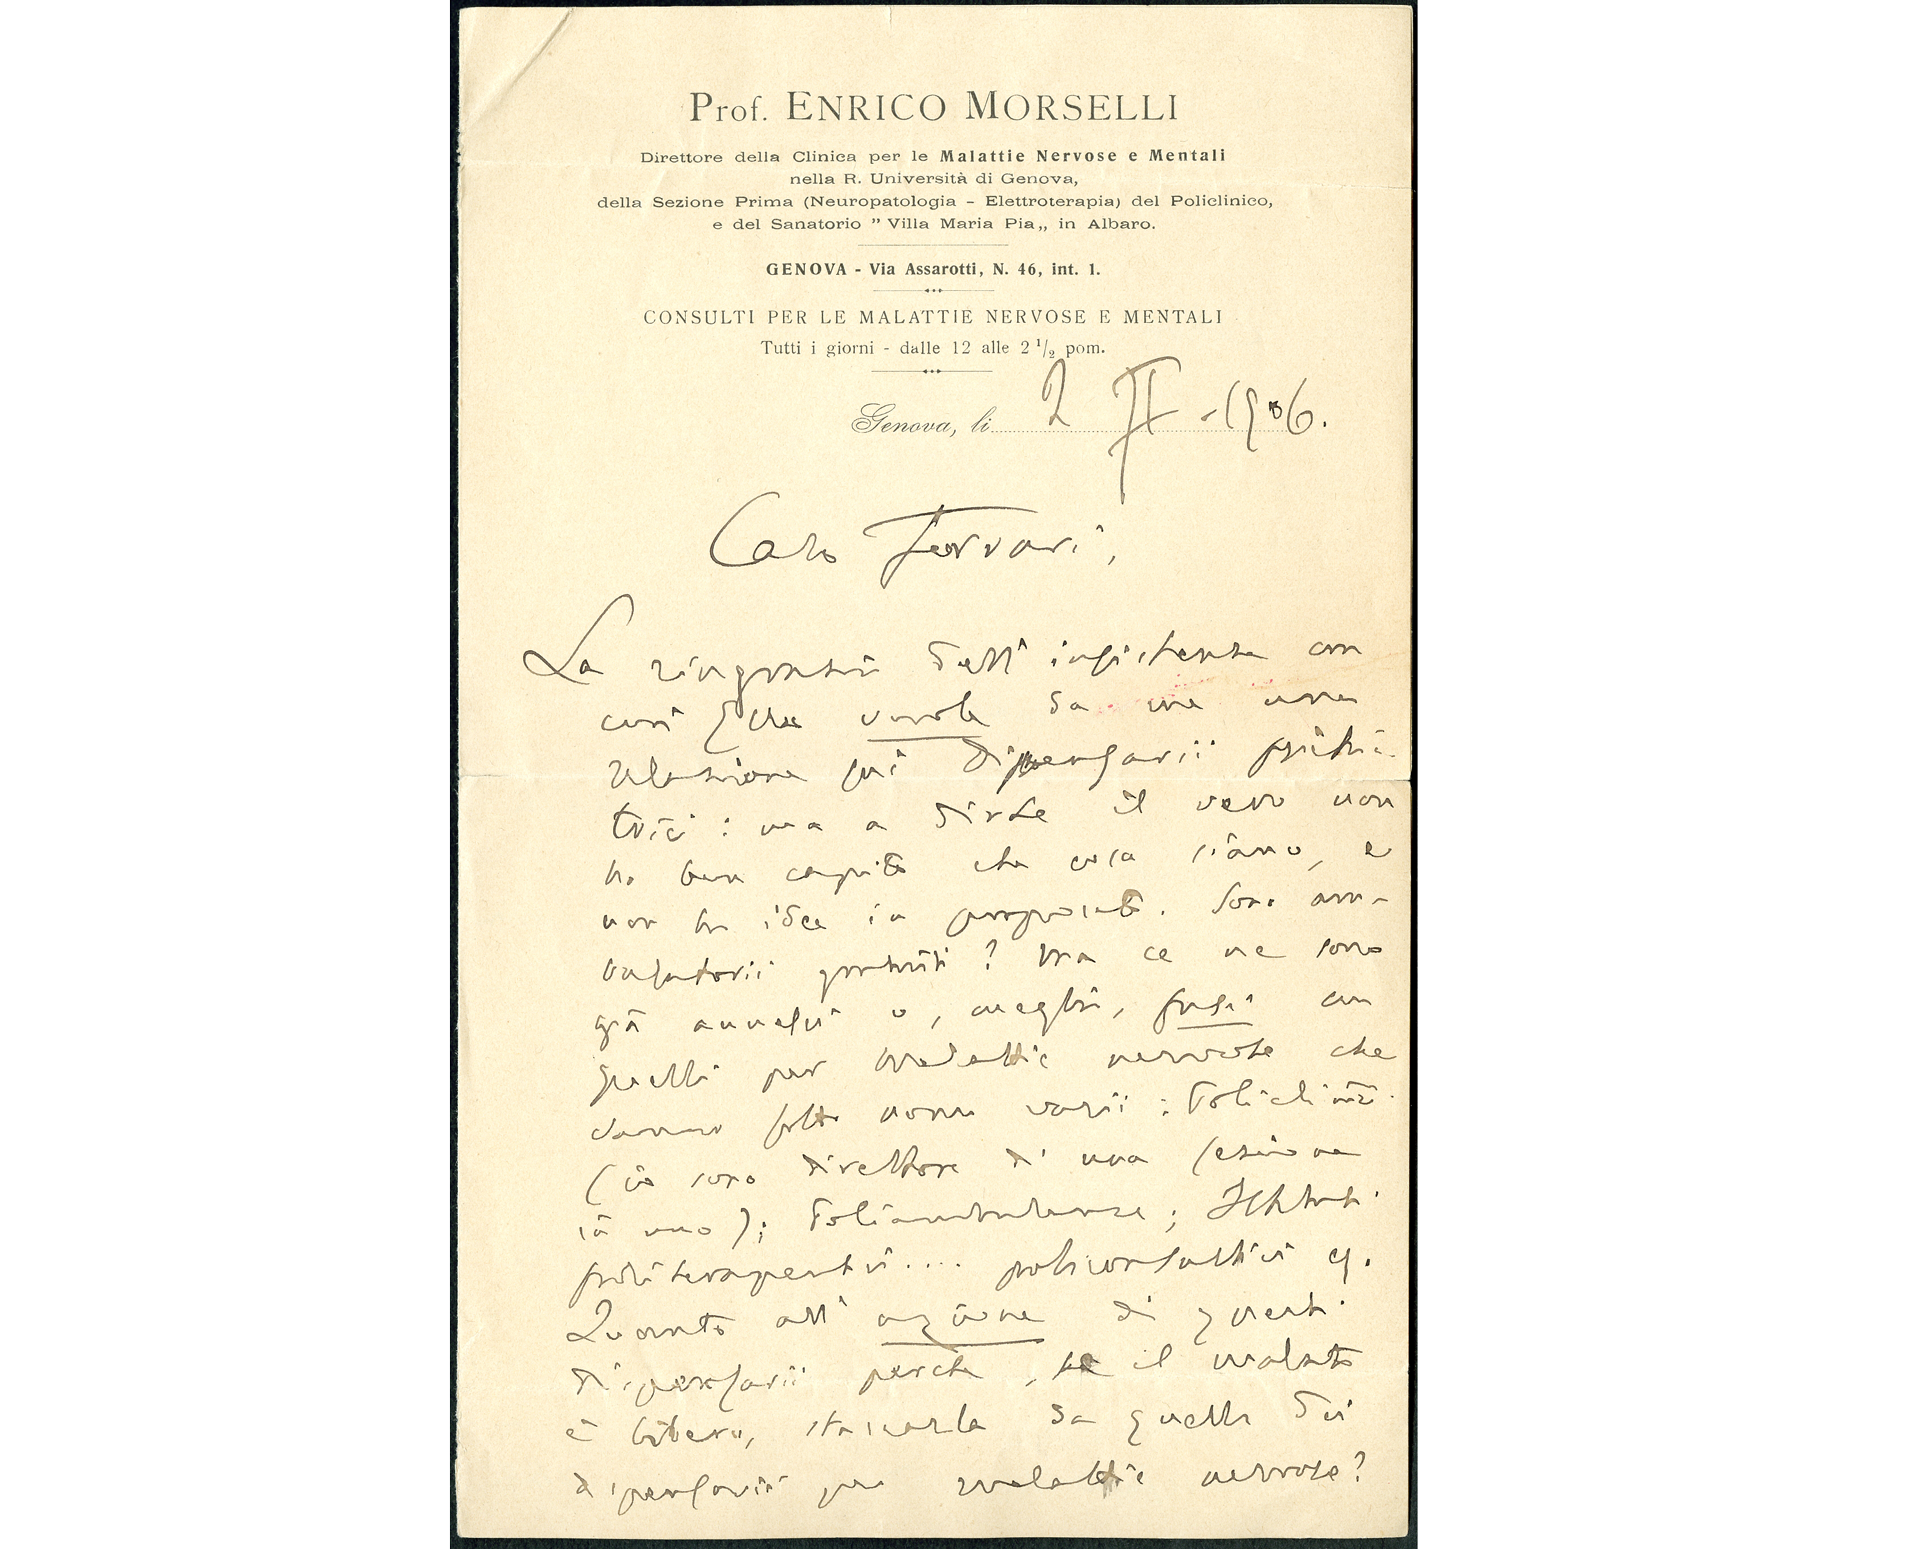 Prof. ENRICO MORSELLI
Direttore della Clinica per le Malattie Nervose e Mentali
nella R. Università di Genova,
della Sezione Prima (Neuropatologia - Elettroterapia) del Policlinico,
e del Sanatorio " Villa Maria Pia „ in Albaro.
GENOVA - Via Assarotti, N. 46, int. 1.
CONSULTI PER LE MALATTIE NERVOSE E MENTALI
Tutti i giorni - dalle 12 alle 2 1/2 pom.
Genova, li 2 II - 1906.
Caro Ferrari,
La ringrazio dell'insistenza con
cui Ella vuole da me una
relazione sui dispensarii psichia-
trici : ma a dirLe il vero non
ho ben capito che cosa siano, e
non ho idee in proposito. Sono am-
bulatorii gratuiti ? Ma ce ne sono
già annessi o, meglio, fusi con
quelli per malattie nervose che
vanno sotto nomi varii : Policlinici
(io sono direttore di una sezione
in uno) ; Poliambulanze ; Istituti
politerapeutici .... policonsultivi
Quanto all'azione di questi
dispensarii perchè, se il malato
è libero, staccarla da quella dei
dispensarii per malattie nervose ?